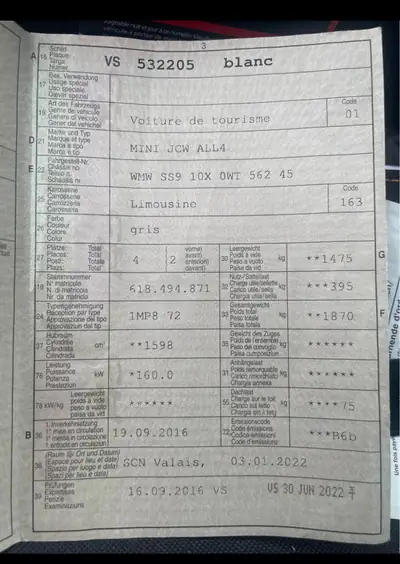 3
A 15 Schild Plaque Targa Numer VS 532205 blanc
17 Bes. Verwendung Usage spécial Uso speciale Diever spezial
19 Art des Fahrzeugs Genre de véhicule Genere di veicolo Gener dal vehichel Voiture de tourisme Code 01
D 21 Marke und Typ Marque et type Marca e tipo Marca e tip MINI JCW ALL4
E 23 Fahrgestell-Nr. Châssis no Telaio n. Schassis nr. WMW SS9 10X 0WT 562 45
25 Karosserie Carrosserie Carrozzeria Carosseria Limousine Code 163
26 Farbe Couleur Colore Colur gris
27 Plätze: Total Places: Total Posti: Totale Plazs: Total 4 vorne) avant) anteriori) davant) 2 30 Leergewicht Poids à vide Peso a vuoto Paisa da vid kg **1475 G
18 Stammnummer N° matricule N. di matricola Nr. da matricla 618.494.871 32 Nutz-/Sattellast Charge utile/sellette Carico utile/sella Chargia utila/sella kg ***395
24 Typengenehmigung Réception par type Approvazione del tipo Approvaziun dal tip 1MP8 72 33 Gesamtgewicht Poids total Peso totale Paisa totala kg **1870 F
37 Hubraum Cylindrée Cilindrata Cilindrada cm³ **1598 35 Gewicht des Zuges Poids de l'ensemble Peso del convoglio Paisa cumposiziun kg ******
76 Leistung Puissance Potenza Prestaziun kW *160.0 31 Anhängelast Poids remorquable Carico rimorchiato Chargia annexa kg ******
78 kW/kg Leergewicht poids à vide peso a vuoto paisa da vid ****** 55 Dachlast Charge sur le toit Carico sul tetto Chargia sin il tetg kg ****75
B 36 1. Inverkehrsetzung 1re mise en circulation 1a messa in circolazione 1. entrada en circulaziun 19.09.2016 72 Emissionscode Code émissions Codice emissioni Code d'emissiuns ***B6b
38 (Raum für Ort und Datum) (Espace pour lieu et date) (Spazio per luogo e data) (Spazi per lieu e data) SCN Valais, 03.01.2022
39 Prüfungen Expertises Perizie Examinaziuns 16.09.2016 VS VS 30 JUN 2022